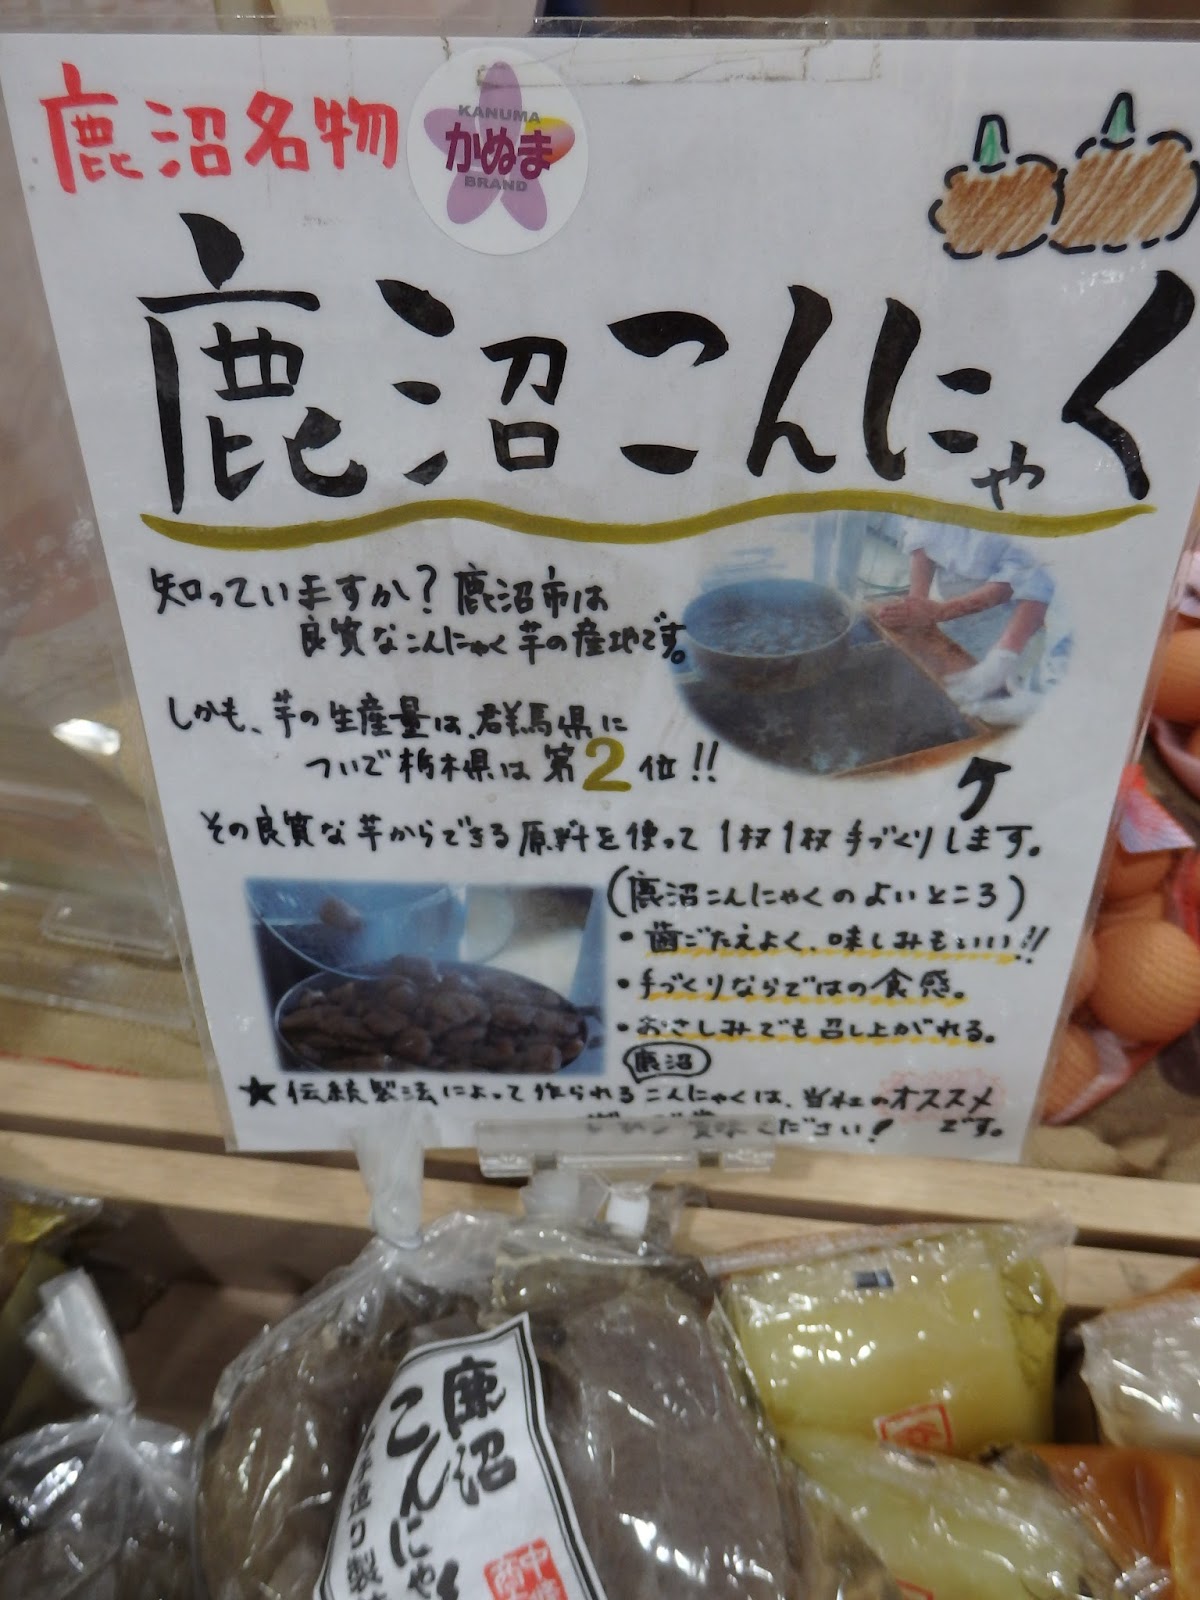 鹿沼名物
KANUMA
かぬま
BRAND
鹿沼こんにゃく
知っていますか?鹿沼市は
良質なこんにゃく芋の産地です。
しかも、芋の生産量は、群馬県に
ついで栃木県は第2位!!
その良質な芋からできる原料を使って1枚1枚手づくりします。
(鹿沼こんにゃくのよいところ)
・歯ごたえよく、味しみもいい!!
・手づくりならではの食感。
・おさしみでも召し上がれる。
鹿沼
★伝統製法によって作られるこんにゃくは、当社のオススメ
です。
ください!
鹿沼
こんにゃく
手造り製